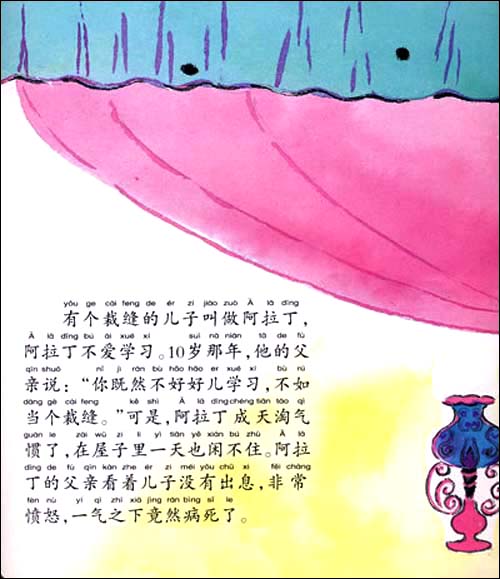 yǒu ge cái feng de ér zi jiào zuò Ā lā dīng
有个裁缝的儿子叫做阿拉丁，
Ā lā dīng bú ài xué xí suì nà nián tā de fù
阿拉丁不爱学习。10岁那年，他的父
qīn shuō nǐ jì rán bù hǎo hāo er xué xí bù rú
亲说：“你既然不好好儿学习，不如
dāng gè cái feng kě shì Ā lā dīng chéng tiān táo qì
当个裁缝。”可是，阿拉丁成天淘气
guàn le zài wū zi li yì tiān yě xián bú zhù Ā lā
惯了，在屋子里一天也闲不住。阿拉
dīng de fù qīn kàn zhe ér zi méi yǒu chū xi fēi cháng
丁的父亲看着儿子没有出息，非常
fèn nù yí qì zhī xià jìng rán bìng sǐ le
愤怒，一气之下竟然病死了。